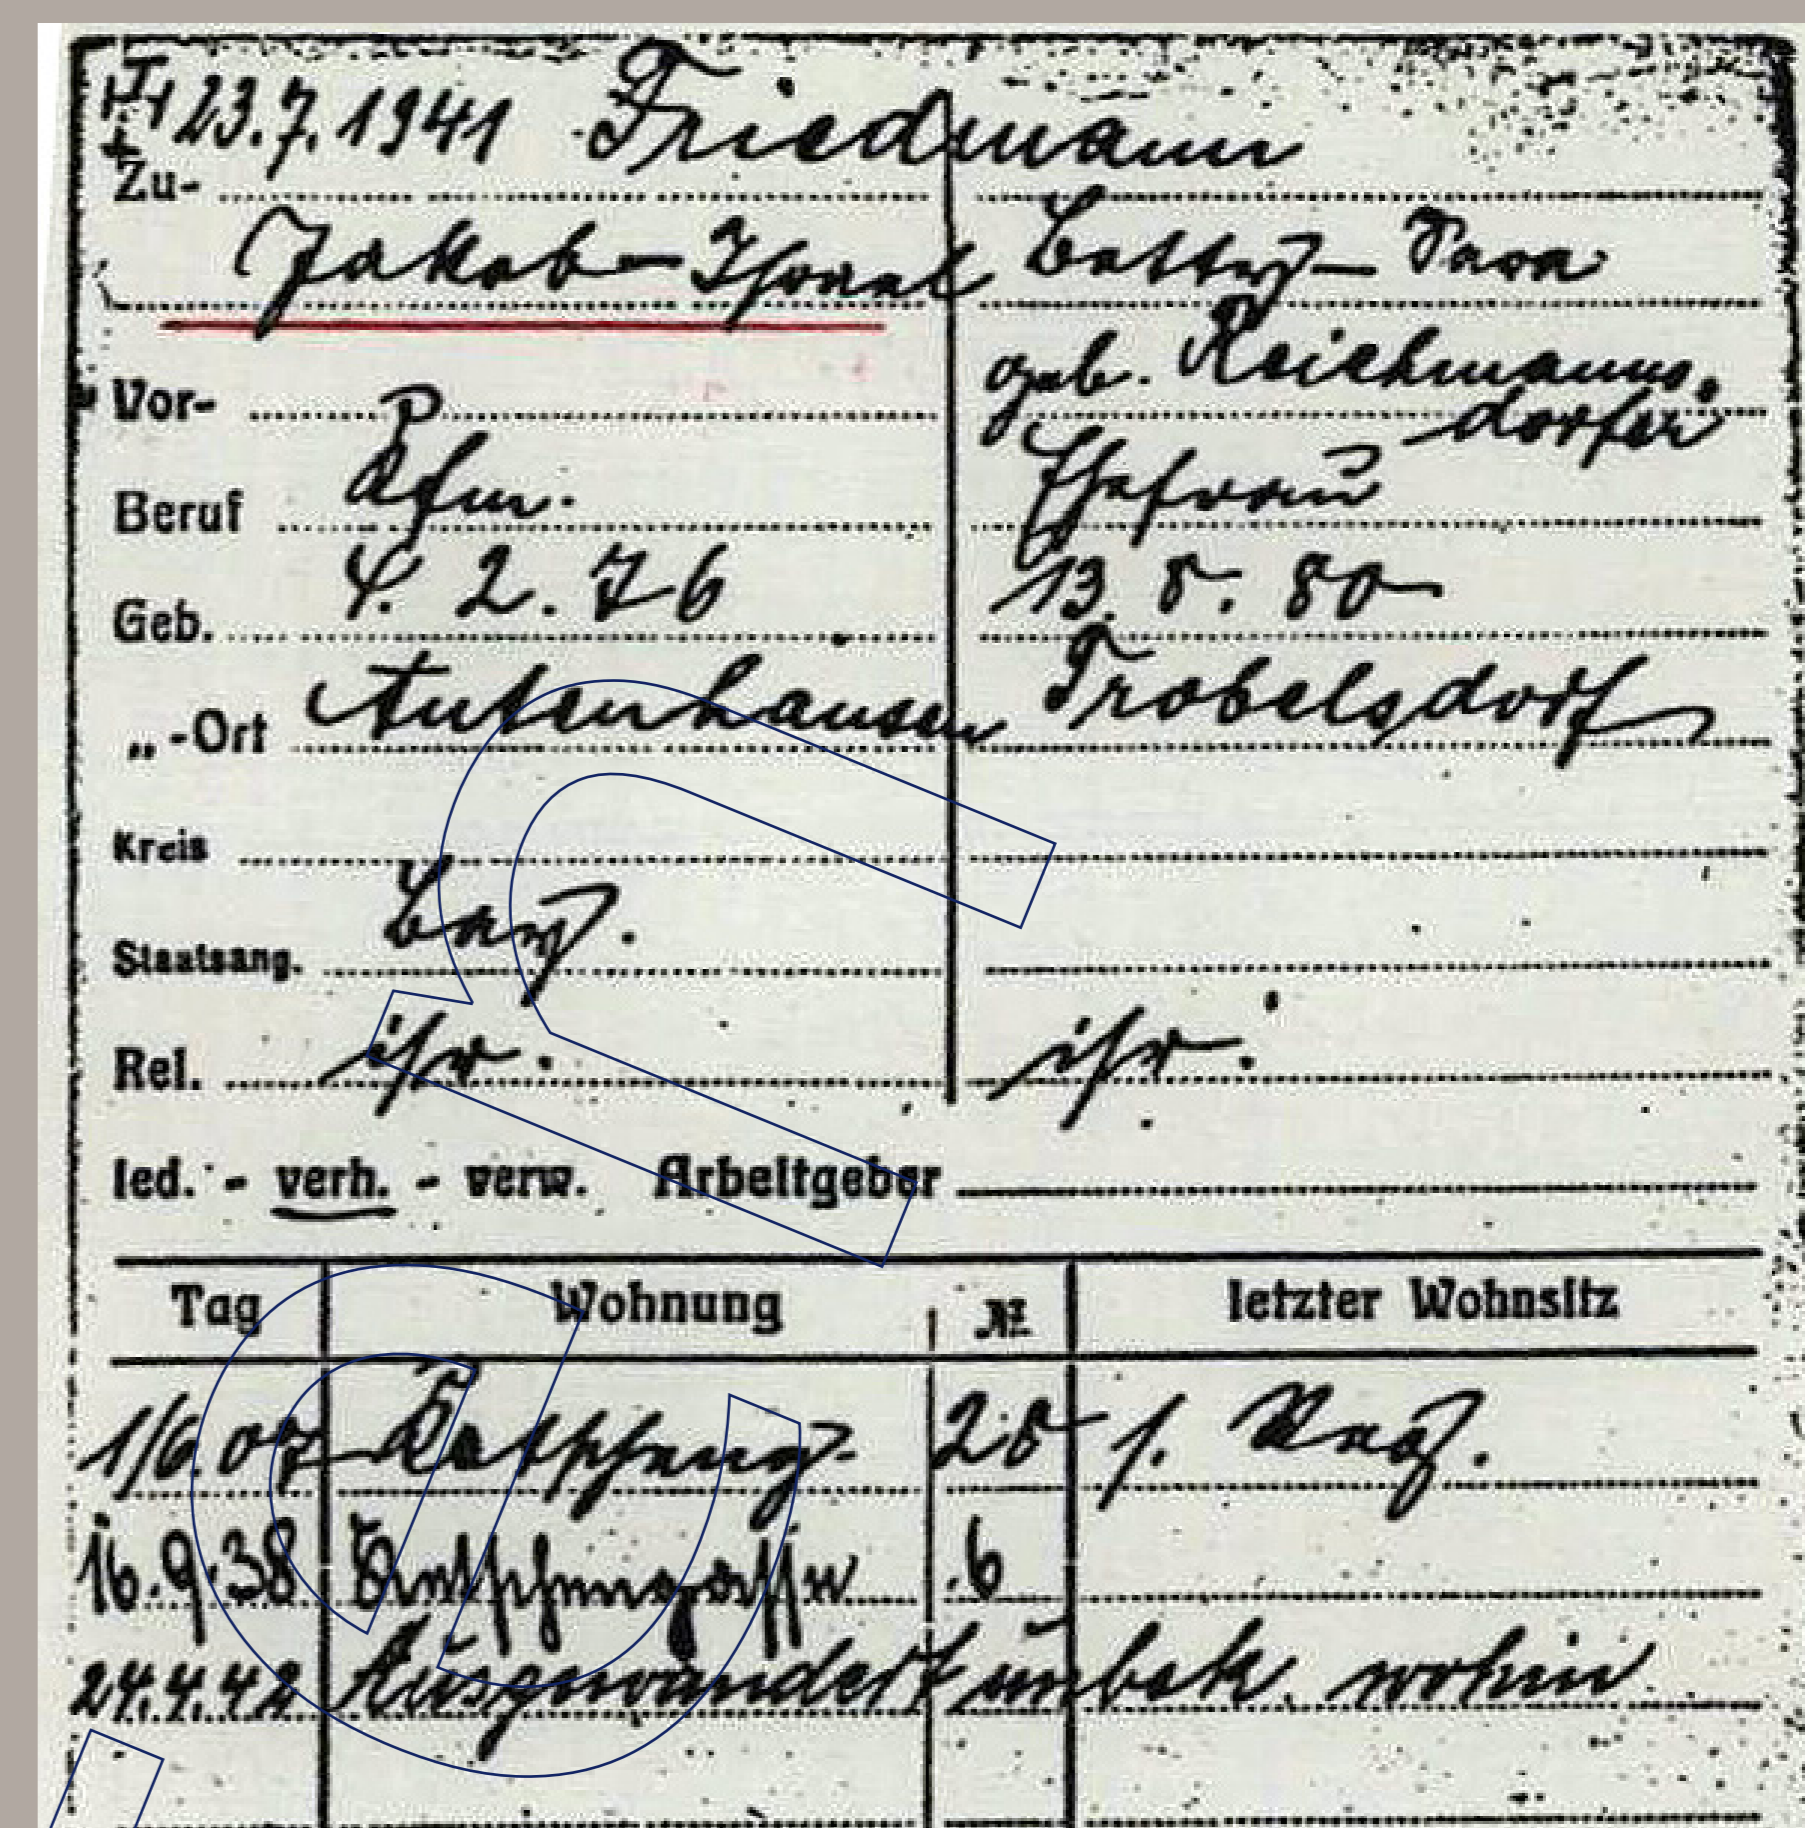 † 23.7.1941 Friedmann
Zu-
Jakob-Israel Betty-Sara
geb. Reichmanns-
Vor- dorfer
Beruf Kfm. Ehefrau
Geb. 4. 2. 76 13. 8. 80
„-Ort Autenhausen Trabelsdorf
Kreis
Staatsang. Bay.
Rel. isr. isr.
led. - verh. - verw. Arbeitgeber
Tag Wohnung № letzter Wohnsitz
1/6.07 28
16.9.38 6
24.4.42 Ausgewandert unbek. wohin